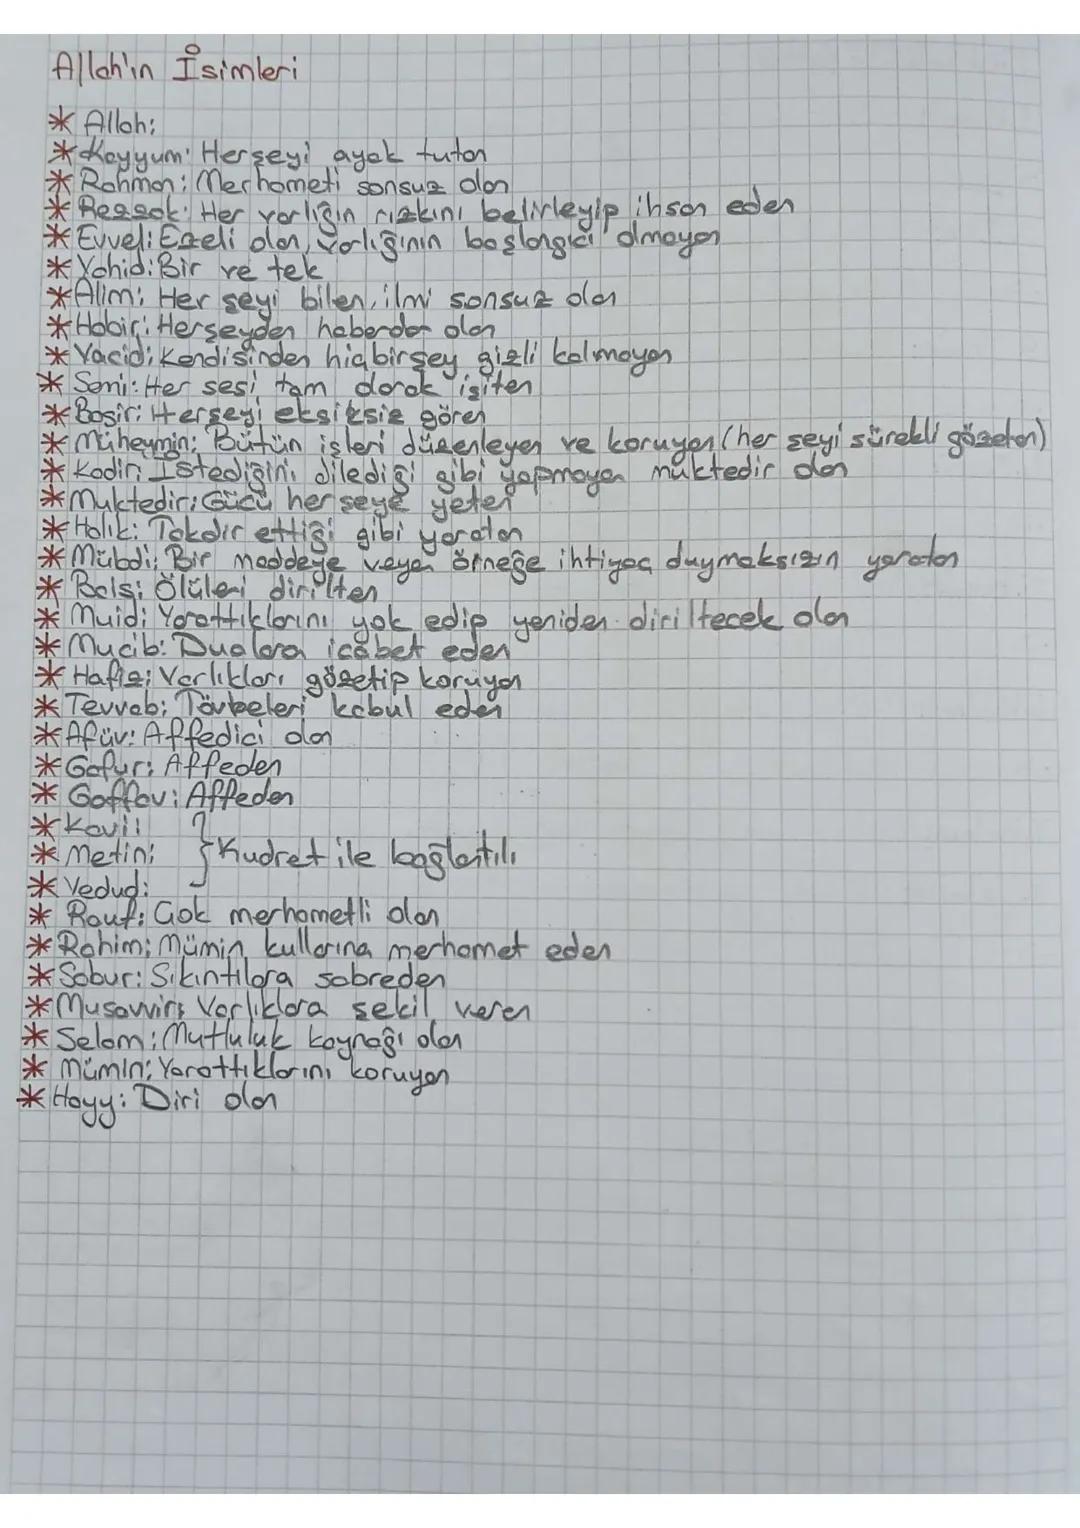 Allah'ın İsimleri
* Allah:
* Kayyum: Herşeyi ayak tutan
* Rahman: Merhameti sonsuz olan
* Rezzak: Her varlığın rızkını belirleyip ihsan eden
* Evvel: Ezeli olan, varlığının başlangıcı olmayan
* Vahid: Bir ve tek
* Alim: Her şeyi bilen, ilmi sonsuz olan
* Habir: Herşeyden haberdar olan
* Vacid: Kendisinden hiçbirşey gizli kalmayan
* Semi: Her sesi tam olarak işiten
* Basir: Herşeyi eksiksiz gören
* Müheymin: Bütün işleri düzenleyen ve koruyan (her şeyi sürekli gözeten)
* Kadir: İstediğini dilediği gibi yapmaya muktedir olan
* Muktedir: Gücü her şeye yeten
* Halık: Takdir ettiği gibi yaratan
* Mübdi: Bir maddeye veya örneğe ihtiyaç duymaksızın yaratan
* Bais: Ölüleri dirilten
* Muid: Yarattıklarını yok edip yeniden diriltecek olan
* Mucib: Dualara icabet eden
* Hafız: Varlıkları gözetip koruyan
* Tevvab: Tövbeleri kabul eden
* Afüv: Affedici olan
* Gafur: Affeden
* Gaffav: Affeden
* Kavi:
* Metin: } Kudret ile bağlantılı
* Vedud:
* Rauf: Çok merhametli olan
* Rahim: Mümin kullarına merhamet eden
* Sabur: Sıkıntılara sabreden
* Musavvir: Varlıklara şekil veren
* Selam: Mutluluk kaynağı olan
* Mümin: Yarattıklarını koruyan
* Hayy: Diri olan